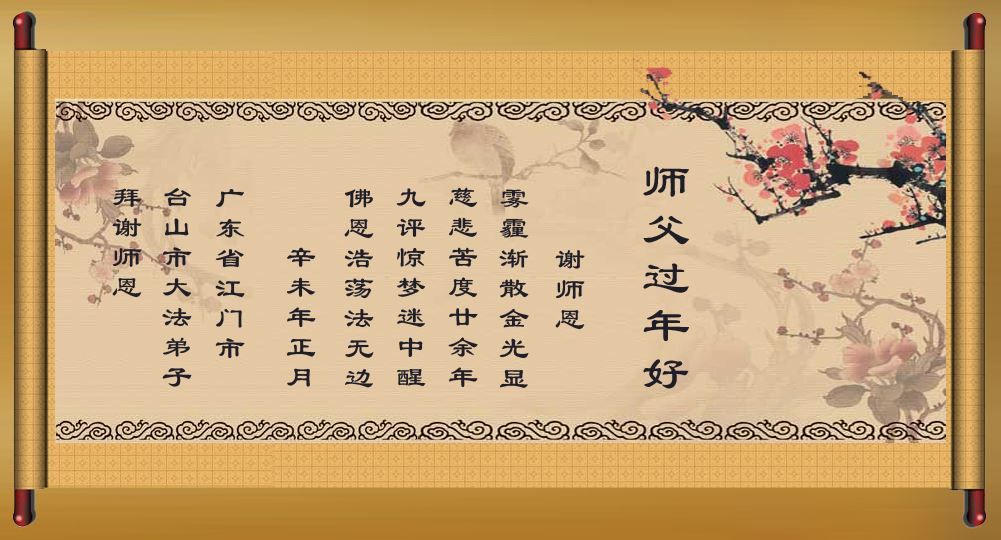 师父过年好
谢师恩
雾霾渐散金光显
慈悲苦度廿余年
九评惊梦迷中醒
佛恩浩荡法无边
辛未年正月
广东省江门市
台山市大法弟子
拜谢师恩